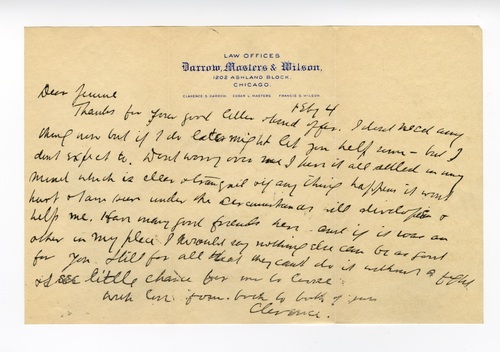 LAW OFFICES
Darrow, Masters & Wilson,
1202 ASHLAND BLOCK,
CHICAGO.
CLARENCE S. DARROW. EDGAR L. MASTERS. FRANCIS S. WILSON.
Feby 4
Dear
Thanks for your good letter & kind offer. I don't need any
thing now but if I do later might let you help – but I
dont expect to. Dont worry over me I have it all settled in my
mind which is clear & tranquil & if any thing happens it wont
hurt & under the circumstances will &
help me. Have many good friends here – and if it was an
other in my place I should say nothing else can be as good
for you. Still for all that they cant do it without a fight
& see little chance for me to
With love from both to both of you
Clarence.